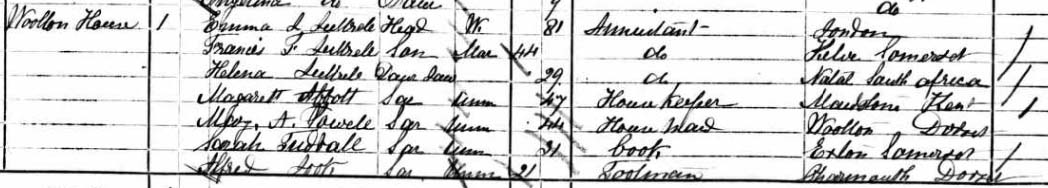 do
Woollon House 1 Emma L Luttrele Head W. 81 Annuitant London
Francis F Luttrele Son Mar 44 do Kilve Somerset
Helena Luttrele Daur Law 29 do Natal South Africa
Magarett Abbott Ser Unm 47 House Keeper Maidstone Kent
Mary A. Powele Ser Unm 44 House Maid Woollon Dorset
Sarah Ser Unm 31 Cook Exton Somerset
Alfred Ser Unm 21 Footman Charmouth Dorset